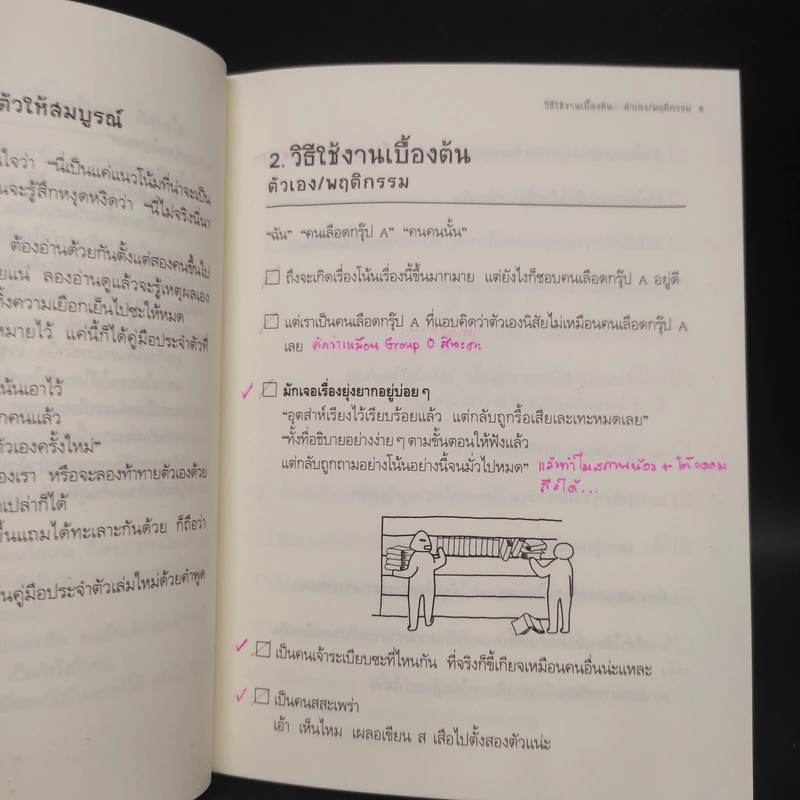 ตัวให้สมบูรณ์
นใจว่า “นี่เป็นแค่แนวโน้มที่น่าจะเป็น
นจะรู้สึกหงุดหงิดว่า “นี่ไม่จริงนี่นา
ต้องอ่านด้วยกันตั้งแต่สองคนขึ้นไป
ยแน่ ลองอ่านดูแล้วจะรู้เหตุผลเอง
ทั้งความเยือกเย็นไปซะให้หมด
หมายไว้ แค่นี้ก็ได้คู่มือประจำตัวที่
น้นเอาไว้
กคนแล้ว
ตัวเองครั้งใหม่”
องเรา หรือจะลองท้าทายตัวเองด้วย
าเปล่าก็ได้
ขึ้นแถมได้ทะเลาะกันด้วย ก็ถือว่า
นคู่มือประจำตัวเล่มใหม่ด้วยคำพูด
วิธีใช้งานเบื้องต้น ตัวเอง/พฤติกรรม
2. วิธีใช้งานเบื้องต้น
ตัวเอง/พฤติกรรม
“ฉัน” “คนเลือดกรุ๊ป A” “คนคนนั้น”
ถึงจะเกิดเรื่องโน้นเรื่องนี้ขึ้นมากมาย แต่ยังไงก็ชอบคนเลือดกรุ๊ป A อยู่ดี
แต่เราเป็นคนเลือดกรุ๊ป A ที่แอบคิดว่าตัวเองนิสัยไม่เหมือนคนเลือดกรุ๊ป A
เลย คิดว่าเหมือน Group O
มักเจอเรื่องยุ่งยากอยู่บ่อย ๆ
“อุตส่าห์เรียงไว้เรียบร้อยแล้ว แต่กลับถูกรื้อเสียเละเทะหมดเลย”
“ทั้งที่อธิบายอย่างง่าย ๆ ตามขั้นตอนให้ฟังแล้ว
แต่กลับถูกถามอย่างโน้นอย่างนี้จนมั่วไปหมด” แล้วทำไม
ได้...
เป็นคนเจ้าระเบียบซะที่ไหนกัน ที่จริงก็ขี้เกียจเหมือนคนอื่นน่ะแหละ
เป็นคนสสะเพร่า
เอ้า เห็นไหม เผลอเขียน ส เสือไปตั้งสองตัวแน่ะ